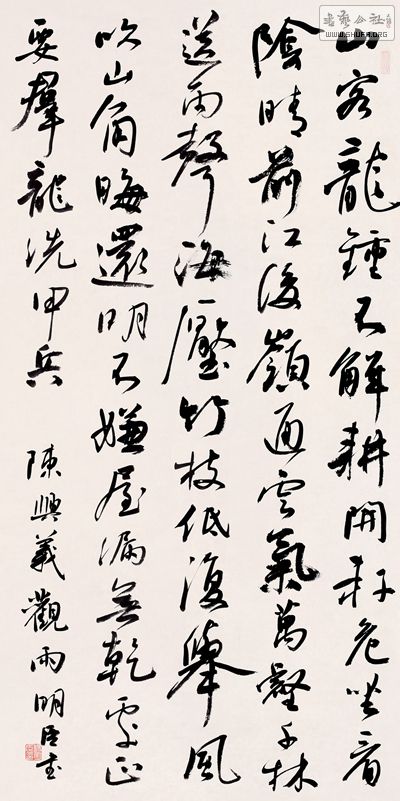 書藝公社
WWW.SHUFA.ORG
山客龍鍾不解耕開軒危坐看
陰晴前江後嶺通雲氣萬壑千林
送雨聲海壓竹枝低復舉風
吹山角晦還明不嫌屋漏無乾處正
要羣龍洗甲兵
陳與義觀雨明臣書